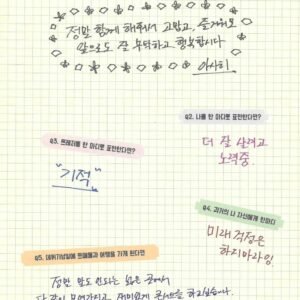 정말 함께 해줘서 고맙고, 즐거워요
앞으로도 잘 부탁하고 행복합시다
아사히
Q2. 나를 한 마디로 표현한다면?
더 잘 살려고
노력중.
Q3. 트레저를 한 마디로 표현한다면?
"기적"
Q4. 과거의 나 자신에게 한마디
미래 걱정은
하지마라잉.
Q5. 데뷔기념일에 트메들과 여행을 가게 된다면
정말 말도 안되는 넓은 곳에서